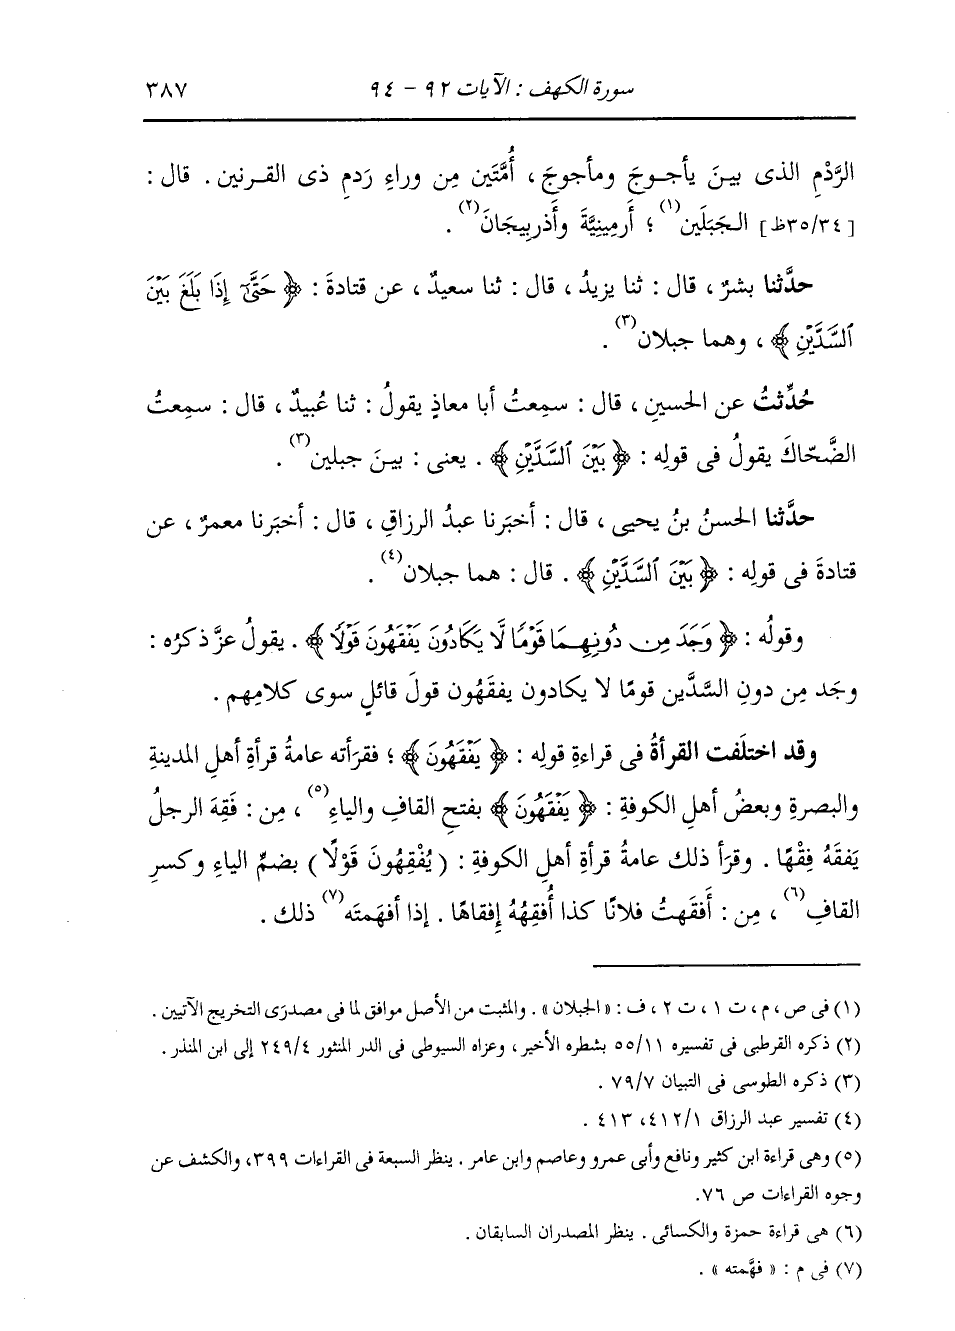 سورة الكهف : الآيات ٩٢ - ٩٤
٣٨٧
الرَّدْمِ الذى بينَ يأجوجَ ومأجوجَ ، أُمَّتَين مِن وراءِ رَدمِ ذى القرنين . قال :
[٣٥/٣٤ظ] الجَبَلَين(١) ؛ أَرمِينِيَّةَ وأَذربِيجَانَ(٢) .
حدَّثنا بشرٌ ، قال : ثنا يزيدُ ، قال : ثنا سعيدٌ ، عن قتادةَ : ﴿ حَتَّىٰٓ إِذَا بَلَغَ بَيْنَ
ٱلسَّدَّيْنِ ﴾ ، وهما جبلان(٣) .
حُدِّثتُ عن الحسينِ ، قال : سمِعتُ أبا معاذٍ يقولُ : ثنا عُبيدٌ ، قال : سمِعتُ
الضَّحّاكَ يقولُ فى قولِه : ﴿ بَيْنَ ٱلسَّدَّيْنِ ﴾ . يعنى : بينَ جبلين(٣) .
حدَّثنا الحسنُ بنُ يحيى ، قال : أخبَرنا عبدُ الرزاقِ ، قال : أخبَرنا معمرٌ ، عن
قتادةَ فى قولِه : ﴿ بَيْنَ ٱلسَّدَّيْنِ ﴾ . قال : هما جبلان(٤) .
وقولُه : ﴿ وَجَدَ مِن دُونِهِمَا قَوْمًا لَّا يَكَادُونَ يَفْقَهُونَ قَوْلًا ﴾ . يقولُ عزَّ ذكرُه :
وجَد مِن دونِ السَّدَّين قومًا لا يكادون يفقَهُون قولَ قائلٍ سوى كلامِهم .
وقد اختلَفت القرأةُ فى قراءةِ قولِه : ﴿ يَفْقَهُونَ ﴾ ؛ فقرَأته عامةُ قرأةِ أهلِ المدينةِ
والبصرةِ وبعضُ أهلِ الكوفةِ : ﴿ يَفْقَهُونَ ﴾ بفتحِ القافِ والياءِ(٥) ، مِن : فَقِهَ الرجلُ
يَفقَهُ فِقْهًا . وقرَأ ذلك عامةُ قرأةِ أهلِ الكوفةِ : ( يُفْقِهُونَ قَوْلًا ) بضمِّ الياءِ وكسرِ
القافِ(٦) ، مِن : أَفقَهتُ فلانًا كذا أُفقِهُهُ إفقاهًا . إذا أفهَمتَه(٧) ذلك .
(١) فى ص ، م ، ت ١ ، ت ٢ ، ف : « الجبلان » . والمثبت من الأصل موافق لما فى مصدرَى التخريج الآتيين .
(٢) ذكره القرطبى فى تفسيره ٥٥/١١ بشطره الأخير ، وعزاه السيوطى فى الدر المنثور ٢٤٩/٤ إلى ابن المنذر .
(٣) ذكره الطوسى فى التبيان ٧٩/٧ .
(٤) تفسير عبد الرزاق ٤١٢/١، ٤١٣ .
(٥) وهى قراءة ابن كثير ونافع وأبى عمرو وعاصم وابن عامر . ينظر السبعة فى القراءات ٣٩٩، والكشف عن
وجوه القراءات ص ٧٦.
(٦) هى قراءة حمزة والكسائى . ينظر المصدران السابقان .
(٧) فى م : « فهَّمته » .